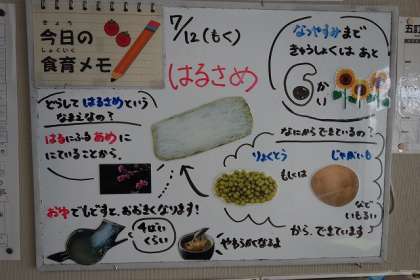 きょう
今日の
しょくいく
食育メモ
7/12(もく)
はるさめ
なつやすみまで
きゅうしょくは あと
6かい
どうして はるさめという
なまえなの?
はるにふる あめに
にていることから。
なにからできているの?
りょくとう
もしくは
じゃがいも
など
いもるい
から、できています
おゆでもどすと、おおきくなります!
4ばい
くらい
やわらかくなるよ